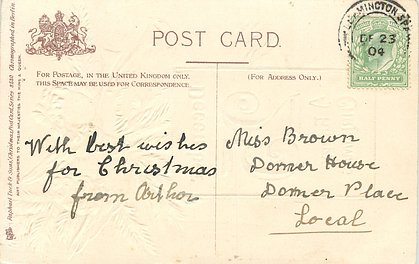 LEAMINGTON SPA
DE 23
04
POST CARD.
HALF PENNY
FOR POSTAGE, IN THE UNITED KINGDOM ONLY,
THIS SPACE MAY BE USED FOR CORRESPONDENCE.
(FOR ADDRESS ONLY.)
Raphael Tuck & Sons' Christmas Postcard, Series 1820 Chromographed in Berlin
ART PUBLISHERS TO THEIR MAJESTIES THE KING & QUEEN.
With best wishes
for Christmas
from Arthur
Miss Brown
Dormer House
Dormer Place
Local